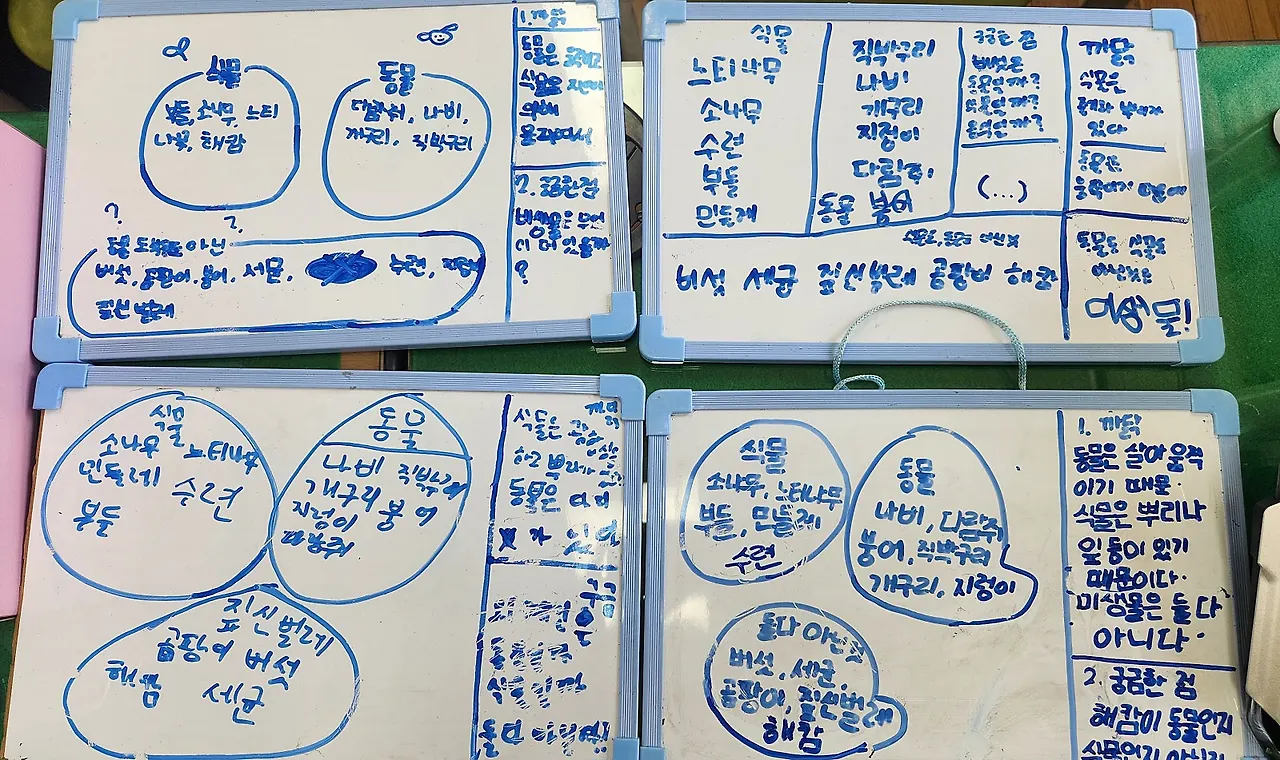 식물
부들, 소나무, 느티
나무, 해캄
동물
다람쥐, 나비,
개구리, 직박구리
?
?
둘 다 아닌
버섯, 곰팡이, 붕어, 세균, 수련,
짚신벌레
1. 까닭
동물은
식물은
의해
2. 궁금한점
미생물은 무엇
이 더 있을까
?
식물
느티나무
소나무
수련
부들
민들레
직박구리
나비
개구리
지렁이
다람쥐
동물 붕어
궁금한 점
버섯은
동물일까?
식물일까?
(...)
까닭
식물은
뿌리가
있다
동물은
움직이기 때문에
버섯 세균 짚신벌레 곰팡이 해캄
동물도 식물도
아닌
미생물!
식물
소나무 느티나무
민들레 수련
부들
동물
나비 직박구리
개구리 붕어
지렁이
짚신벌레
곰팡이 버섯
해캄 세균
까닭
식물은 광합성
하고 뿌리가
동물은 다리
가 있어
식물
소나무, 느티나무
부들, 민들레
수련
동물
나비, 다람쥐
붕어, 직박구리
개구리, 지렁이
둘다 아닌쪽
버섯, 세균,
곰팡이, 짚신벌레
해캄
1. 까닭
동물은 살아 움직
이기 때문.
식물은 뿌리나
잎 등이 있기
때문이다.
미생물은 둘 다
아니다.
2. 궁금한 점
해캄이 동물인지
식물인지